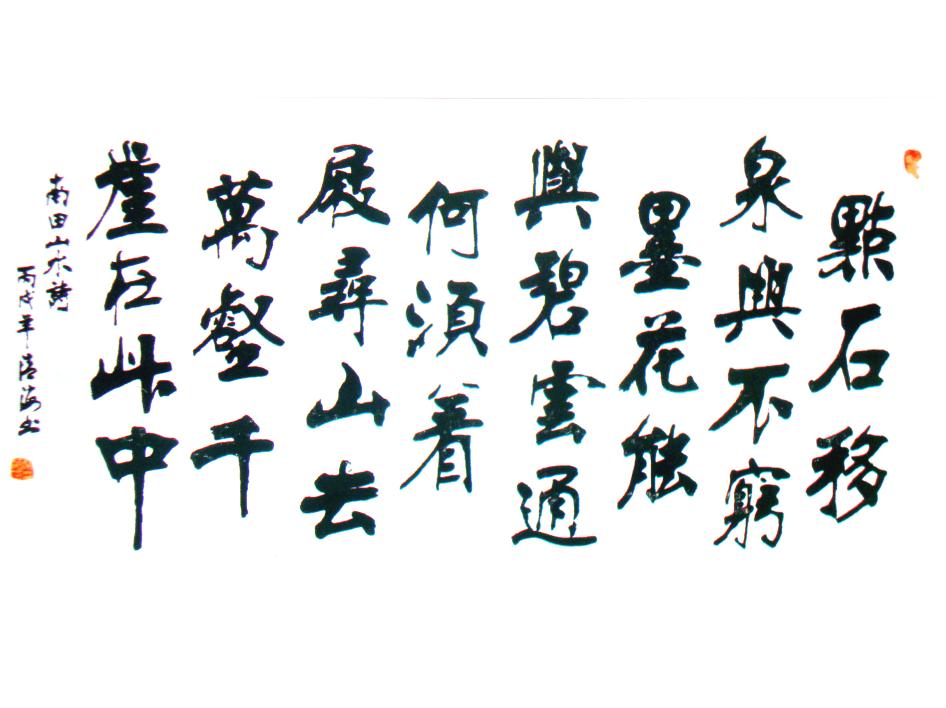 點石移
泉興不窮
墨花能
與碧雲通
何須着
屐尋山去
萬壑千
崖在此中
南田山水詩
丙戌年清海书